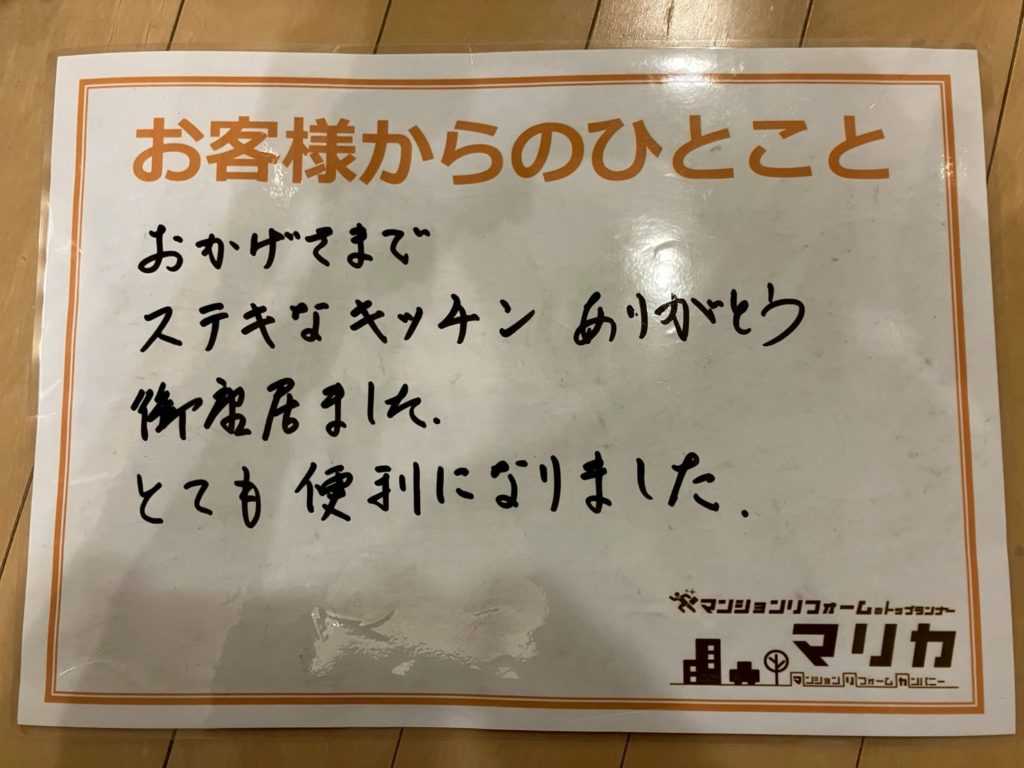 お客様からのひとこと
おかげさまで
ステキなキッチン ありがとう
御座居ました.
とても 便利になりました.
マンションリフォームのトップランナー
マリカ
マンションリフォームカンパニー